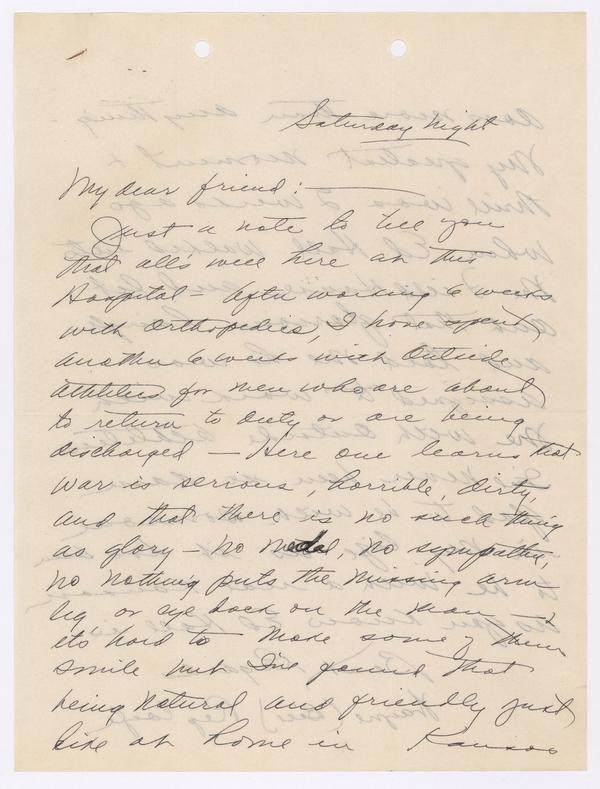 Saturday Night
My dear friend: —
Just a note to tell you
that all's well here at this
Hospital - After working 6 weeks
with Orthopedics, I have spent
another 6 weeks with Outside
athletics for men who are about
to return to duty or are being
discharged — Here one learns that
war is serious, horrible, dirty,
and that there is no such thing
as glory - no medal, no sympathy,
no nothing puts the missing arm
leg or eye back on the man — &
it's hard to make some of them
smile but I've found that
being natural and friendly just
like at home in Kansas